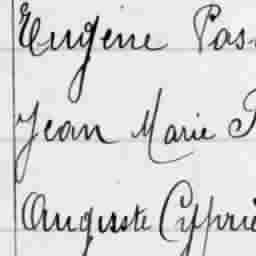 Eugène Pas
Jean Marie P
Auguste Cyprie